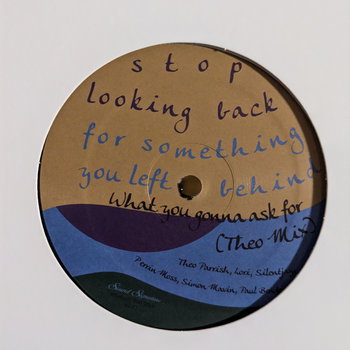 stop
looking back
for something
you left behind
What you gonna ask for
(Theo Mix)
Theo Parrish, Lori, Silentjay,
Perrin Moss, Simon Mavin, Paul Bender
Sound Signature